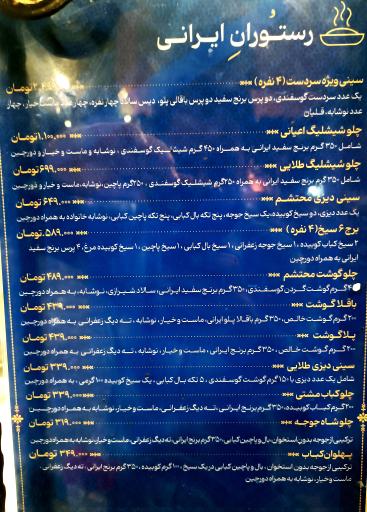 رستوران ایرانی
سینی ویژه سردست (۴ نفره)
یک عدد سردست گوسفندی، دو پرس برنج سفید دو پرس باقالی پلو، دیس سالاد چهار نفره، چهار عدد خیار، چهار
عدد نوشابه، قلیان
چلو شیشلیگ اعیانی ۱.۱۰۰.۰۰۰ تومان
شامل ۳۵۰ گرم برنج سفید ایرانی به همراه ۴۵۰ گرم شیشلیک گوسفندی، نوشابه و ماست و خیار و دورچین
چلو شیشلیگ طلایی ۶۹۹.۰۰۰ تومان
شامل ۳۵۰ گرم برنج سفید ایرانی به همراه ۲۵۰گرم شیشلیک گوسفندی، ۲۵۰گرم پاچین، نوشابه،ماست و خیار و دورچین
سینی دیزی محتشم ۶۴۹.۰۰۰ تومان
یک عدد دیزی، دو سیخ کوبیده،یک سیخ جوجه، پنج تکه بال کبابی، پنج تکه پاچین کبابی، نوشابه خانواده به همراه دورچین
برج ۶ سیخ (۴ نفره) ۵۸۹.۰۰۰ تومان
۲ سیخ کباب کوبیده، ۱ سیخ جوجه زعفرانی، ۱ سیخ بال کبابی، ۱ سیخ پاچین، ۱ سیخ کوبیده مرغ، ۴ پرس برنج سفید
ایرانی به همراه دورچین
چلو گوشت محتشم ۴۸۹.۰۰۰ تومان
گرم گوشت گردن گوسفندی، ۳۵۰گرم برنج سفید ایرانی، سالاد شیرازی، نوشابه، به همراه دورچین
باقلا گوشت ۴۳۹.۰۰۰ تومان
۲۰۰گرم گوشت خالص، ۳۵۰گرم باقالا پلو ایرانی، ماست و خیار، نوشابه، ته دیگ زعفرانی، به همراه دورچین
پلا گوشت ۴۳۹.۰۰۰ تومان
۲۰۰گرم گوشت خالص، ۳۵۰گرم برنج ایرانی، ماست و خیار، نوشابه، ته دیگ زعفرانی به همراه دورچین
سینی دیزی طلایی ۳۳۹.۰۰۰ تومان
شامل یک عدد دیزی با ۱۵۰گرم گوشت گوسفندی، ۵ تکه بال کبابی، یک سیخ کوبیده ۱۰۰ گرمی، به همراه دورچین
چلو کباب مشتی ۳۳۹.۰۰۰ تومان
۲۰۰گرم کباب کوبیده، ۳۵۰گرم برنج ایرانی، ته دیگ زعفرانی، ماست و خیار، نوشابه به همراه دورچین
چلو شاه جوجه ۳۱۹.۰۰۰ تومان
ترکیبی از جوجه بدون استخوان، بال و پاچین کبابی،۳۵۰گرم برنج ایرانی، ته دیگ زعفرانی، ماست و خیار،نوشابه به همراه دورچین
پهلوان کباب ۳۴۹.۰۰۰ تومان
ترکیبی از جوجه بدون استخوان، بال و پاچین کبابی در یک سیخ، ۱۰۰ گرم کوبیده، ۳۵۰گرم برنج ایرانی، ته دیگ زعفرانی،
ماست و خیار، نوشابه به همراه دورچین